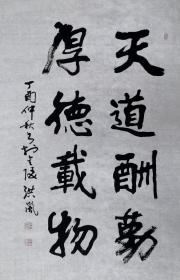 天道酬勤
厚德載物
丁酉仲秋
洪胤